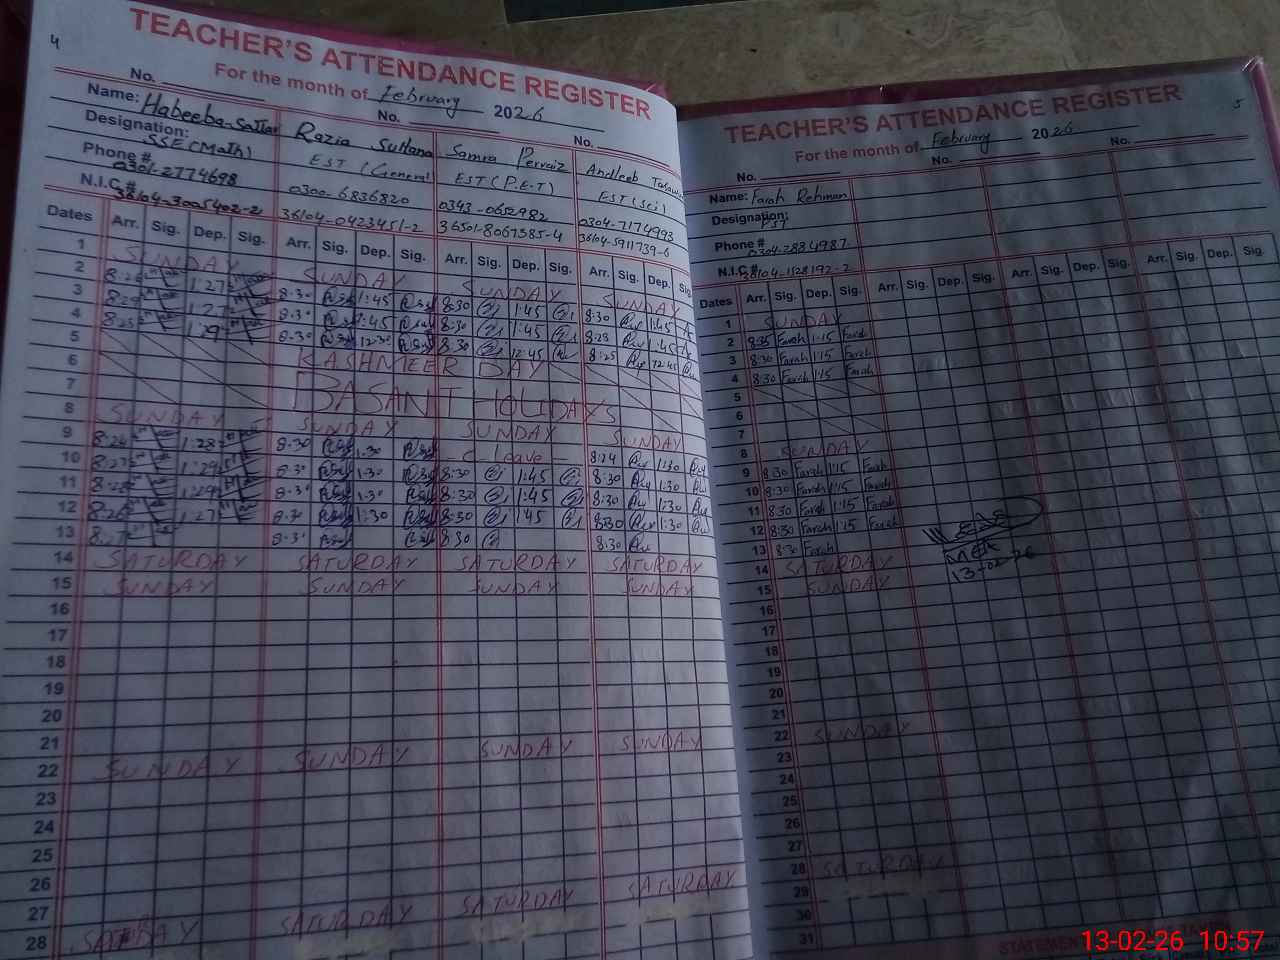 4
TEACHER'S ATTENDANCE REGISTER
For the month of February 2026
No. No. No.
Name: Habeeba Sattar Razia Sultana Samra Pervaiz Andleeb
Designation: SSE(Math) EST (General EST (P.E.T) EST (Sci)
Phone # 0301-2774698 0300-6836820 0343-0652982 0304-7174993
N.I.C.# 36104-3005402-2 36104-0423451-2 36501-8067385-4 36104-5911739-6
Dates Arr. Sig. Dep. Sig. Arr. Sig. Dep. Sig. Arr. Sig. Dep. Sig. Arr. Sig. Dep. Sig.
1 SUNDAY SUNDAY SUNDAY SUNDAY
2 8:26 1:27 8:30 1:45 8:30 1:45 8:30 1:45
3 8:29 1:27 8:30 1:45 8:30 1:45 8:28 1:45
4 8:25 1:29 8:30 12:30 8:30 12:45 8:25 12:45
5 KASHMEER DAY
6 BASANT HOLIDAYS
7
8 SUNDAY SUNDAY SUNDAY SUNDAY
9 8:24 1:28 8:30 1:30 C Leave 8:24 1:30
10 8:27 1:29 8:30 1:30 8:30 1:45 8:30 1:30
11 8:28 1:29 8:30 1:30 8:30 1:45 8:30 1:30
12 8:26 1:27 8:30 1:30 8:30 1:45 8:30 1:30
13 8:27 8:30 8:30 8:30
14 SATURDAY SATURDAY SATURDAY SATURDAY
15 SUNDAY SUNDAY SUNDAY SUNDAY
16
17
18
19
20
21
22 SUNDAY SUNDAY SUNDAY SUNDAY
23
24
25
26
27
28 SATURDAY SATURDAY SATURDAY SATURDAY
5
TEACHER'S ATTENDANCE REGISTER
For the month of February 2026
No. No. No.
Name: Farah Rehman
Designation: PST
Phone # 0304-2884987
N.I.C.# 36104-1128192-2
Dates Arr. Sig. Dep. Sig. Arr. Sig. Dep. Sig. Arr. Sig. Dep. Sig. Arr. Sig. Dep. Sig.
1 SUNDAY
2 8:35 Farah 1:15 Farah
3 8:30 Farah 1:15 Farah
4 8:30 Farah 1:15 Farah
5
6
7
8 SUNDAY
9 8:30 Farah 1:15 Farah
10 8:30 Farah 1:15 Farah
11 8:30 Farah 1:15 Farah
12 8:30 Farah 1:15 Farah
13 8:30 Farah
14 SATURDAY
15 SUNDAY
13-02-26
16
17
18
19
20
21
22 SUNDAY
23
24
25
26
27
28 SATURDAY
29
30
31
STATEMENT
13-02-26 10:57